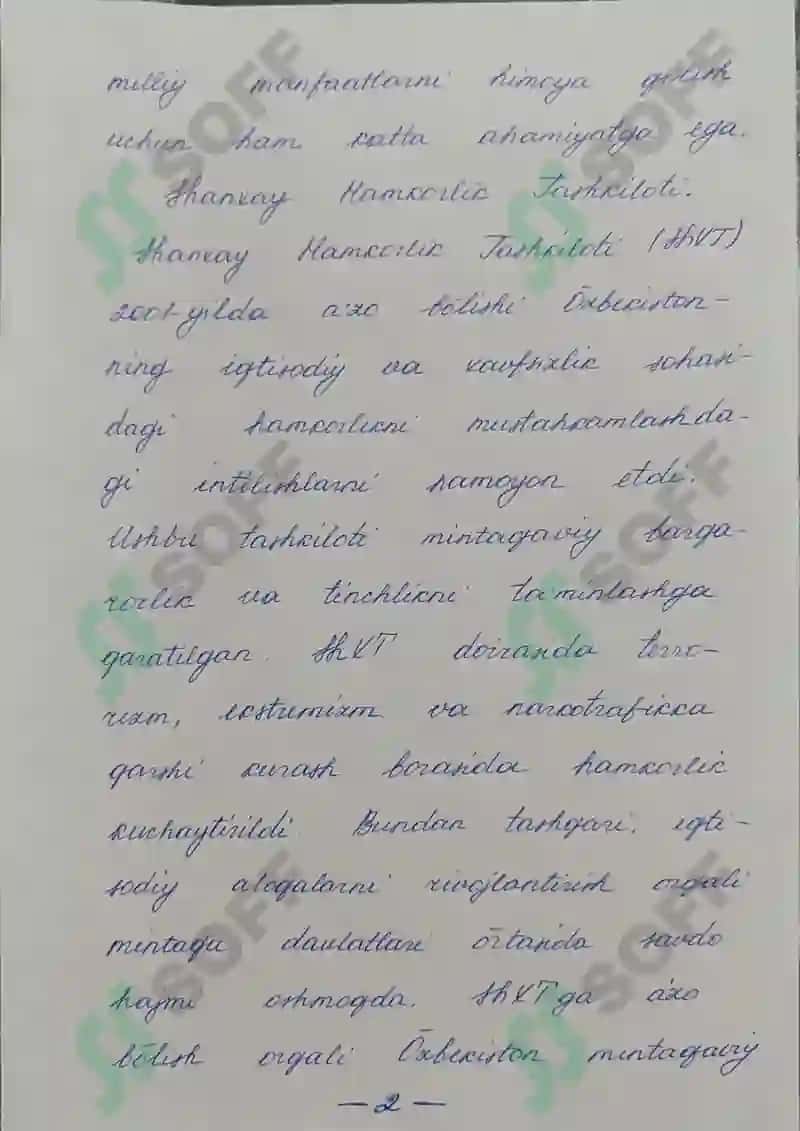 milliy manfaatlarni himoya qilish
uchun ham katta ahamiyatga ega.
Shanxay Hamkorlik Tashkiloti.
Shanxay Hamkorlik Tashkiloti (ShXT)
2001-yilda a'zo bōlishi Ōzbekiston-
ning iqtisodiy va xavfsizlik sohasi-
dagi hamkorlikni mustahkamlashda-
gi intilishlarni namoyon etdi.
Ushbu tashkiloti mintaqaviy barqa-
rorlik va tinchlikni ta'minlashga
qaratilgan. ShXT doirasida terro-
rizm, ekstremizm va narkotrafikka
qarshi kurash borasida hamkorlik
kuchaytirildi. Bundan tashqari, iqti-
sodiy aloqalarni rivojlantirish orqali
mintaqa davlatlari ōrtasida savdo
hajmi oshmoqda. ShXTga a'zo
bōlish orqali Ōzbekiston mintaqaviy
— 2 —
SOFF
SOFF
SOFF
SOFF
SOFF
SOFF